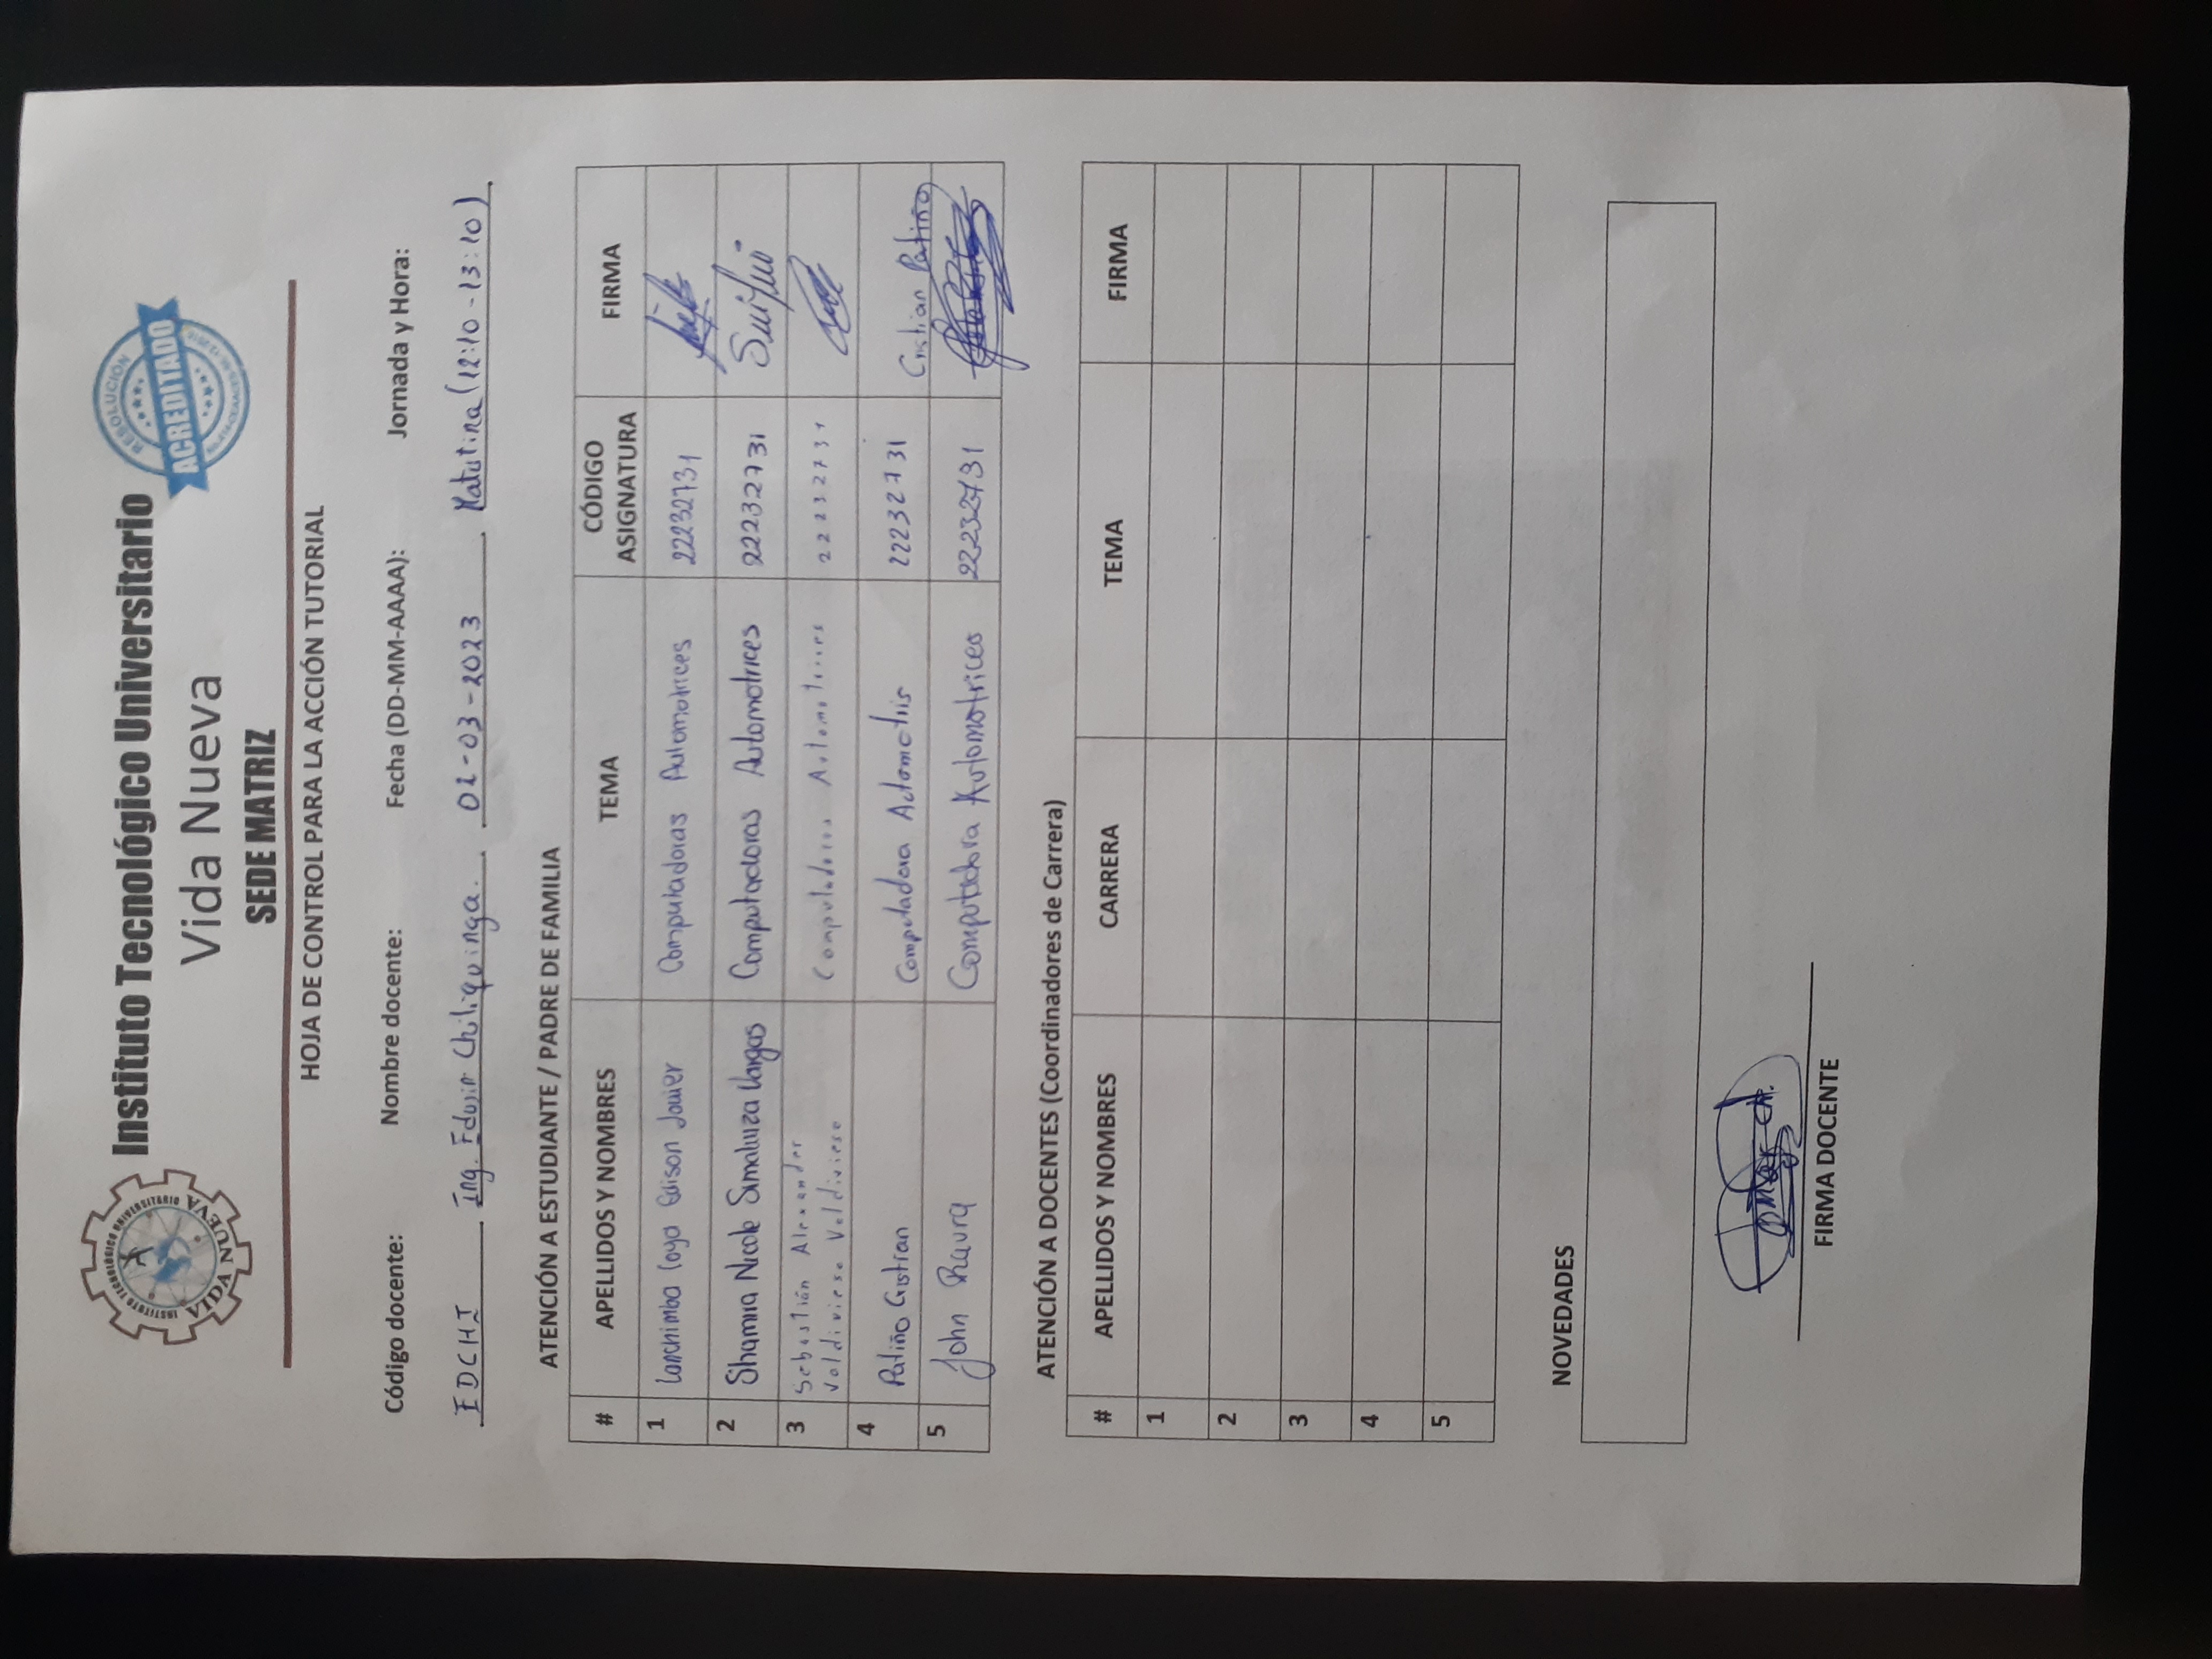 INSTITUTO TECNOLÓGICO UNIVERSITARIO
VIDA NUEVA
Instituto Tecnológico Universitario
Vida Nueva
SEDE MATRIZ
RESOLUCIÓN
ACREDITADO
HOJA DE CONTROL PARA LA ACCIÓN TUTORIAL
Código docente: Nombre docente: Fecha (DD-MM-AAAA): Jornada y Hora:
EDCHI Ing. Edwin Chiliquinga. 01-03-2023 Matutina (12:10 - 13:10)
ATENCIÓN A ESTUDIANTE / PADRE DE FAMILIA
# APELLIDOS Y NOMBRES TEMA CÓDIGO ASIGNATURA FIRMA
1 Lanchimba Loya Edison Javier Computadoras Automotrices 22232731
2 Shamira Nicole Simaluiza Vargas Computadoras Automotrices 22232731
3 Sebastián Alexander
Valdivieso Valdivieso Computadoras Automotrices 22232731
4 Patiño Cristian Computadora Automotris 22232731 Cristian Patiño
5 John Raura Computadora Automotrices 22232731
ATENCIÓN A DOCENTES (Coordinadores de Carrera)
# APELLIDOS Y NOMBRES CARRERA TEMA FIRMA
1
2
3
4
5
NOVEDADES
FIRMA DOCENTE